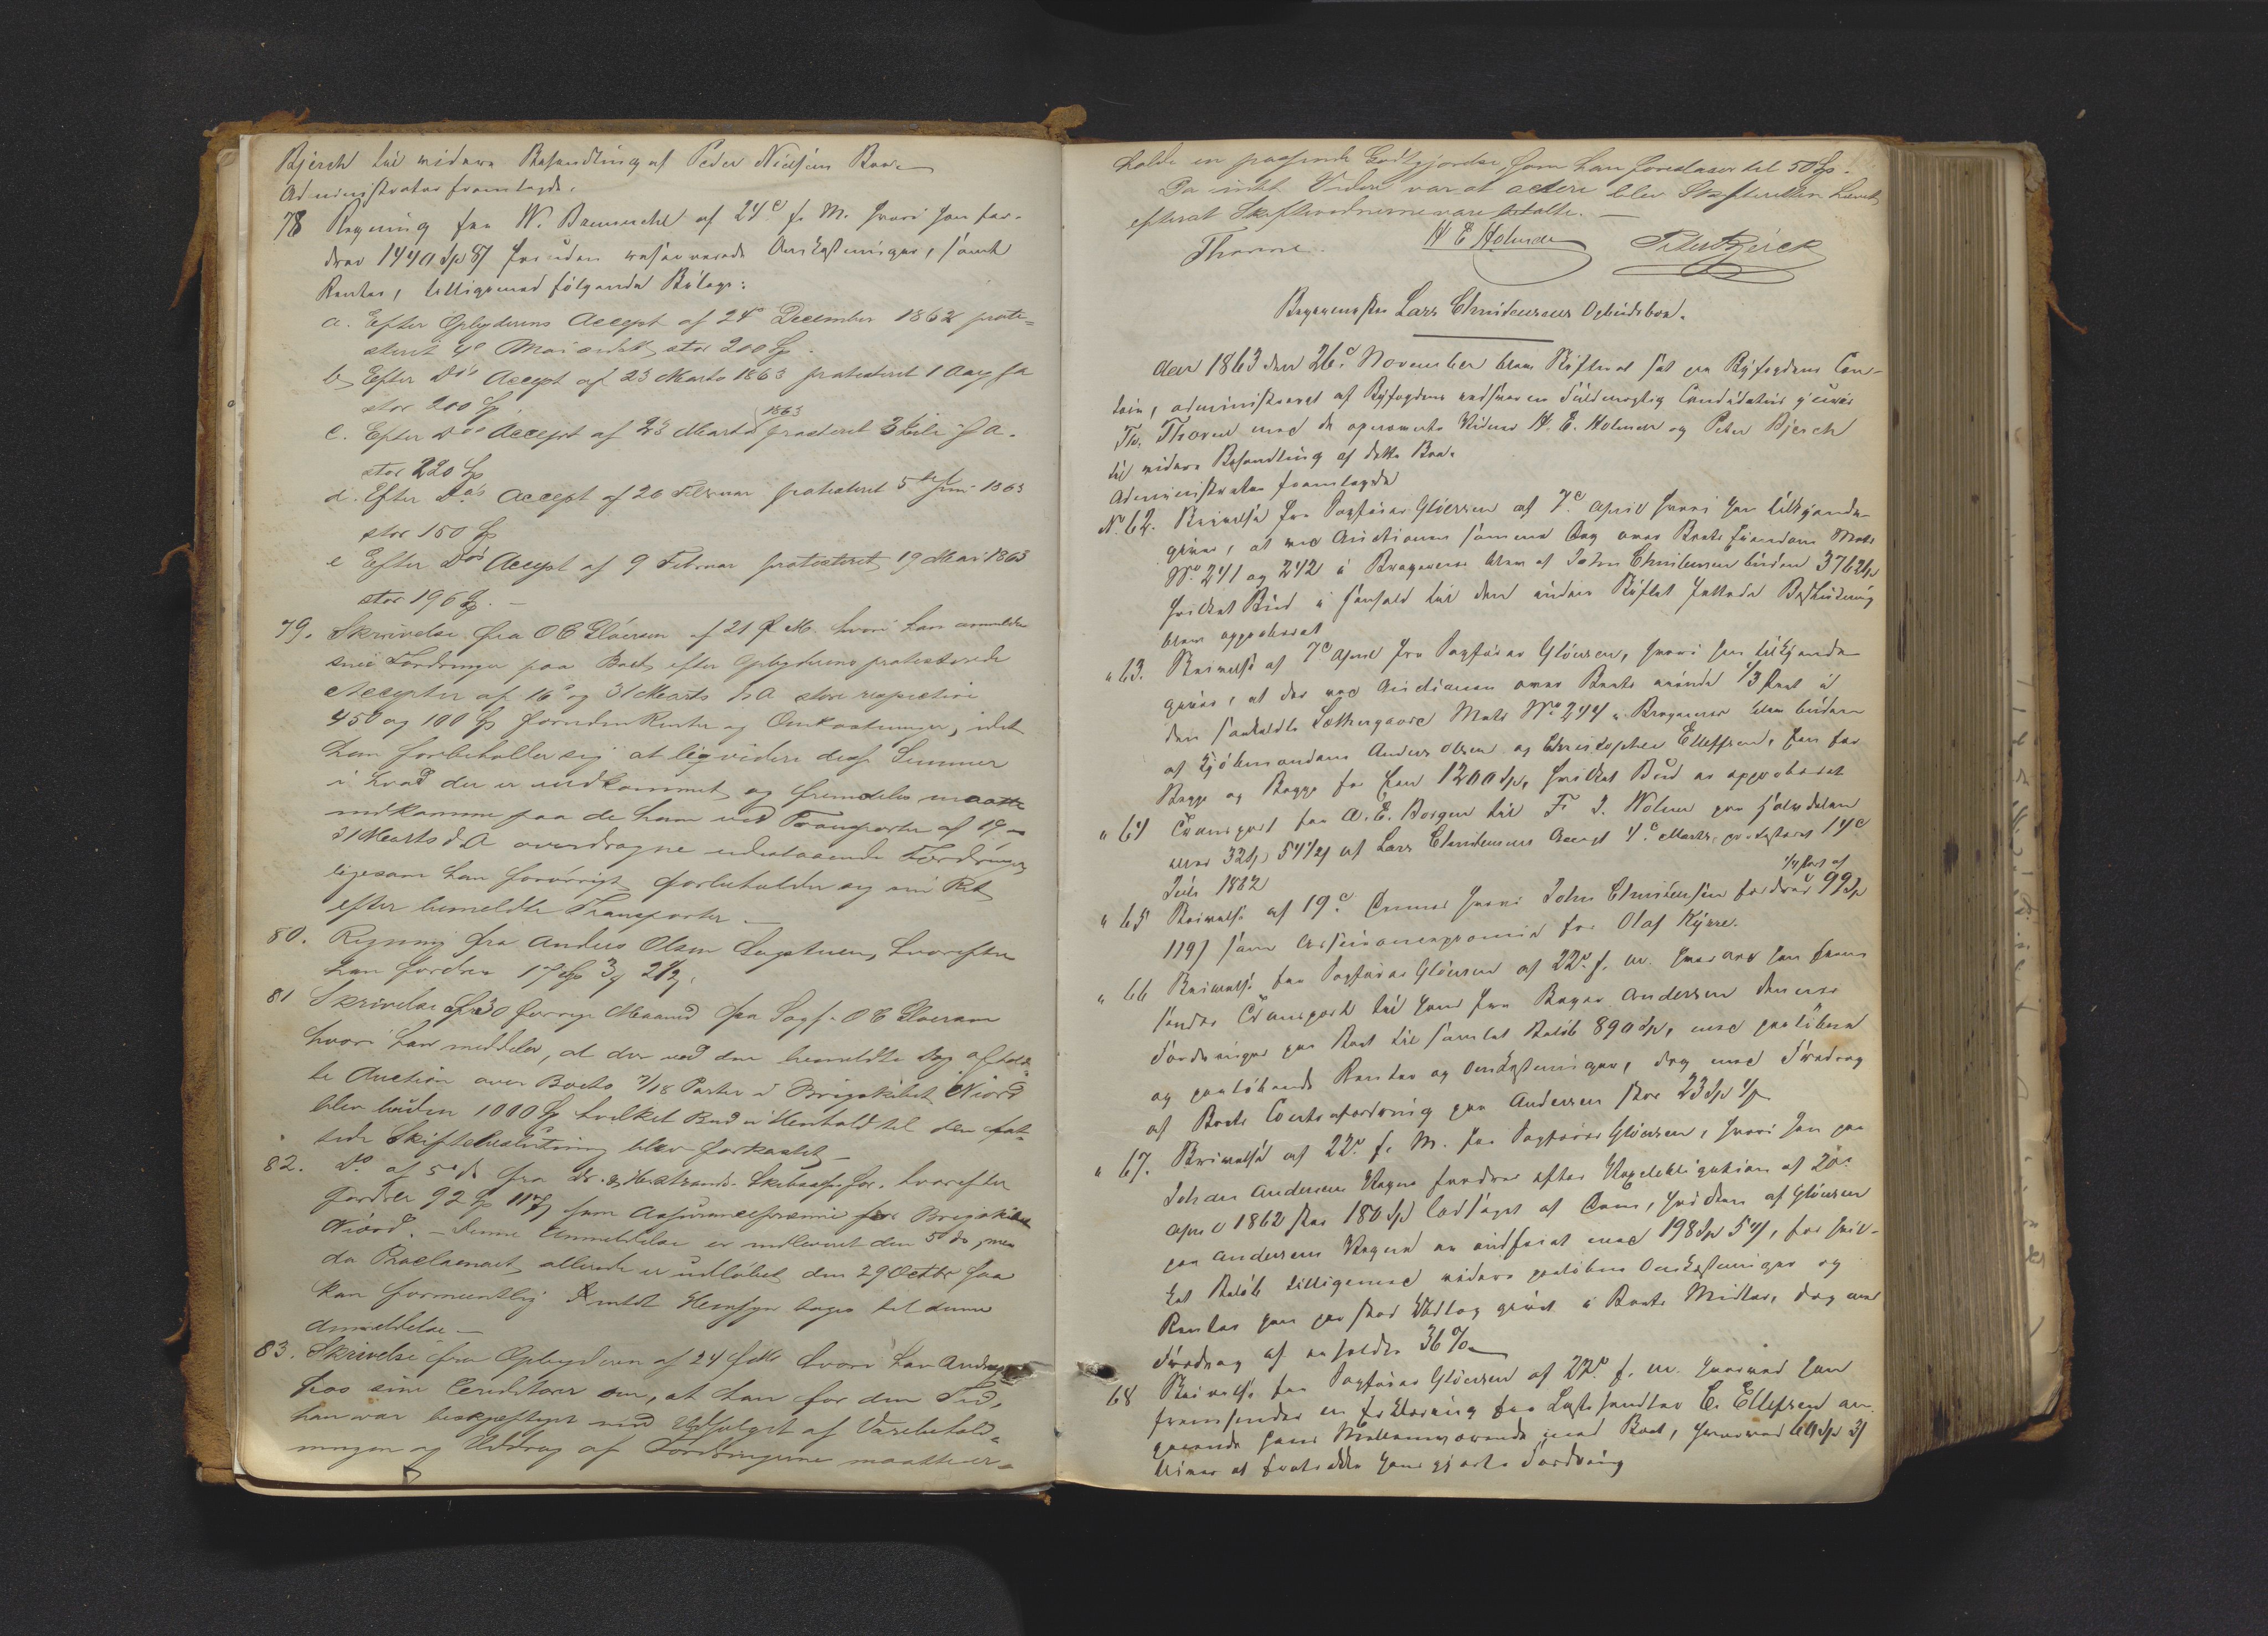 Bjerch til videre Behandling af Peder Nielsens Bo.
Administrator fremlagde.
78 Regning fra W. Bammehl af 24e f. M. hvori han for-
drer 1440 Sp 87 foruden reserverede Omkostninger, samt
Renter, tilligemed følgende Bilage:
a. Efter Opbyderens Accept af 24e December 1862 prote-
steret 4e Mai stor 200 Sp.
b. Efter Dos Accept af 23 Marts 1863 protesteret 1 Aug f a
stor 200 Sp.
c. Efter Dos Accept af 23 Marts 1863 protesteret 3 Juli f A.
stor 220 Sp
d. Efter Dos Accept af 20 Februar protesteret 5 Juni 1863
stor 150 Sp
e Efter Dos Accept af 9 Februar protesteret 19 Mai 1863
stor 196 Sp. —
79. Skrivelse fra O C Gløersen af 21 f M. hvori han anmelder
sine Fordringer paa Boet efter Opbyderens protesterede
Accepter af 16e og 31 Marts d. A store respective
450 og 100 Sp foruden Renter og Omkostninger, idet
han forbeholder sig at liqvidere disse Summer
i hvad der er indkommet og fremdeles maatte
indkomme paa de ham ved Transporter af 19 —
31 Marts d. A overdragne udestaaende Fordringer
ligesom han forøvrigt forbeholder sig sin Ret
efter bemeldte Transporter. —
80. Regning fra Anders Olsen hvorefter
han fordrer 17 Sp 3 21/2.
81 Skrivelse fra 30 forrige Maaned fra Sagf. O C Gloersen
hvori han meddeler, at der ved den bemeldte Dag afhold-
te Auction over Boets 7/18 Parter i Brigskibet Niord
blev buden 1000 Sp hvilket Bud i Henhold til den fat-
tede Skiftebeslutning blev forkastet —
82. Do af 5e ds fra hvorefter
fordrer 92 Sp 117 som Assurancepræmie for Brigskibet
Niord. — Denne Anmeldelse er indleveret den 5 ds, men
da Proclamaet allerede er udløbet den 29 Octbr saa
kan formeentlig intet Hensyn tages til denne
Anmeldelse —
83. Skrivelse fra Opbyderen af 24 f M hvori han Andrager
hos sine Creditorer om, at han for den Tid,
han var beskjæftiget med Udsalget af Varebehold-
ningen og Uddrag af Fordringerne maatte er-
holde en passende Godtgjørelse, som han foreslaaer til 50 Sp.
Da intet Videre var at actere blev Skifteretten hævet
efterat Skiftevidnerne vare betalte. —
Thorne H E Holmsen Peter Bjerck
Bagermester Lars Christensens Opbudsbo.
Aar 1863 den 26e November blev Skifteret sat paa Byfogdens Con-
toir, administreret af Byfogdens edsvorne Fuldmægtig Candidatus juris
Fr. Thorne med de opnævnte Vidner H. E. Holmsen og Peter Bjerch
til videre Behandling af dette Bo.
Administrator fremlagde
No 62. Skrivelse fra Sagfører Gløersen af 7e April hvori han tilkjende-
giver, at ved Auctionen samme Dag over Boets Eiendom Matr
No 241 og 242 i Bragernes blev af John Christensen buden 3762 Sp
hvilket Bud i Henhold til den under Skiftet fattede Beslutning
blev approberet
" 63. Skrivelse af 7e April fra Sagfører Gløersen, hvori han tilkjende-
giver, at der ved Auctionen over Boets eiende 1/3 Part i
den saakaldte Løkkergaard Matr No 244 i Bragernes blev buden
af Kjøbmændene Anders Olsen og Christopher Ellefsen, En for
Begge og Begge for Een 1200 Sp, hvilket Bud er approberet
" 64 Transport fra A. E. Borgen til Fr. J. Nolum paa
32 Sp 54 1/2 af Lars Christensens Accept 4e Marts, protesteret 14e
Juli 1862
" 65 Skrivelse af 19e hvori John Christensen fordrer 1/4 Part af 99 Sp
119 som Assuranceprømie for Olaf Kyrre.
" 66 Skrivelse fra Sagfører Gløersen af 22e f. M. hvorved han frem-
sender Transport til ham fra Bager Andersen
Fordringer paa Boet til samlet Beløb 890 Sp, med paaløbne
og paaløbende Renter og Omkostninger, dog med Fradrag
af Boets Contrafordring paa Andersen stor 23 Sp
" 67. Skrivelse af 22e f. M. fra Sagfører Gløersen, hvori han paa
Johan Andersens Vegne fordrer efter Vexelobligation af 20e
April 1862 stor 180 Sp udstædt af hvilken af Gløersen
paa Andersens Vegne er indfriet med 198 Sp 54, for hvil-
ket Beløb tilligemed videre paaløbne Omkostninger og
Renter han paastaar Udlæg givet i Boets Midler, dog med
Fradrag af erholdte 36 %
68 Skrivelse fra Sagfører Gløersen af 22e f. M. hvorved han
fremsender en Erklæring fra Lasthandler C. Ellefsen an-
gaaende hans Mellemværende med Boet, hvorved 60 Sp
bliver at fratrække hans gjorte Fordring